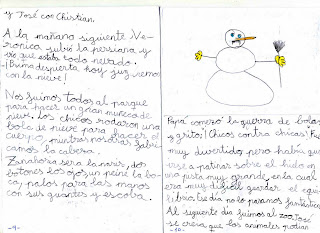 y José con Christian.
A la mañana siguiente Ve-
ronica subió la persiana y
vio que estaba todo nevado.
-¡Bruno despierta, hoy jugaremos
con la nieve!
Nos fuimos todos al parque
para hacer un gran muñeco de
nieve. Los chicos rodaron una
bola de nieve para hacer el
cuerpo, mientras nosotras fabri
camos la cabeza.
Zanahoria sera la nariz, dos
botones los ojos, un peine la bo-
ca, palos para las manos
con sus guantes y escoba.
-9-
Papá comenzó la guerra de bolas
y gritó: ¡Chicos contra chicas! Fue
muy divertido, pero había que
irse a patinar sobre el hielo en
una pista muy grande, en la cual
era muy difícil guardar el equi
librio. Ese día no lo pasamos fantástico
Al siguiente día fuimos al zoo. José
se creia que los animales patian
-10-